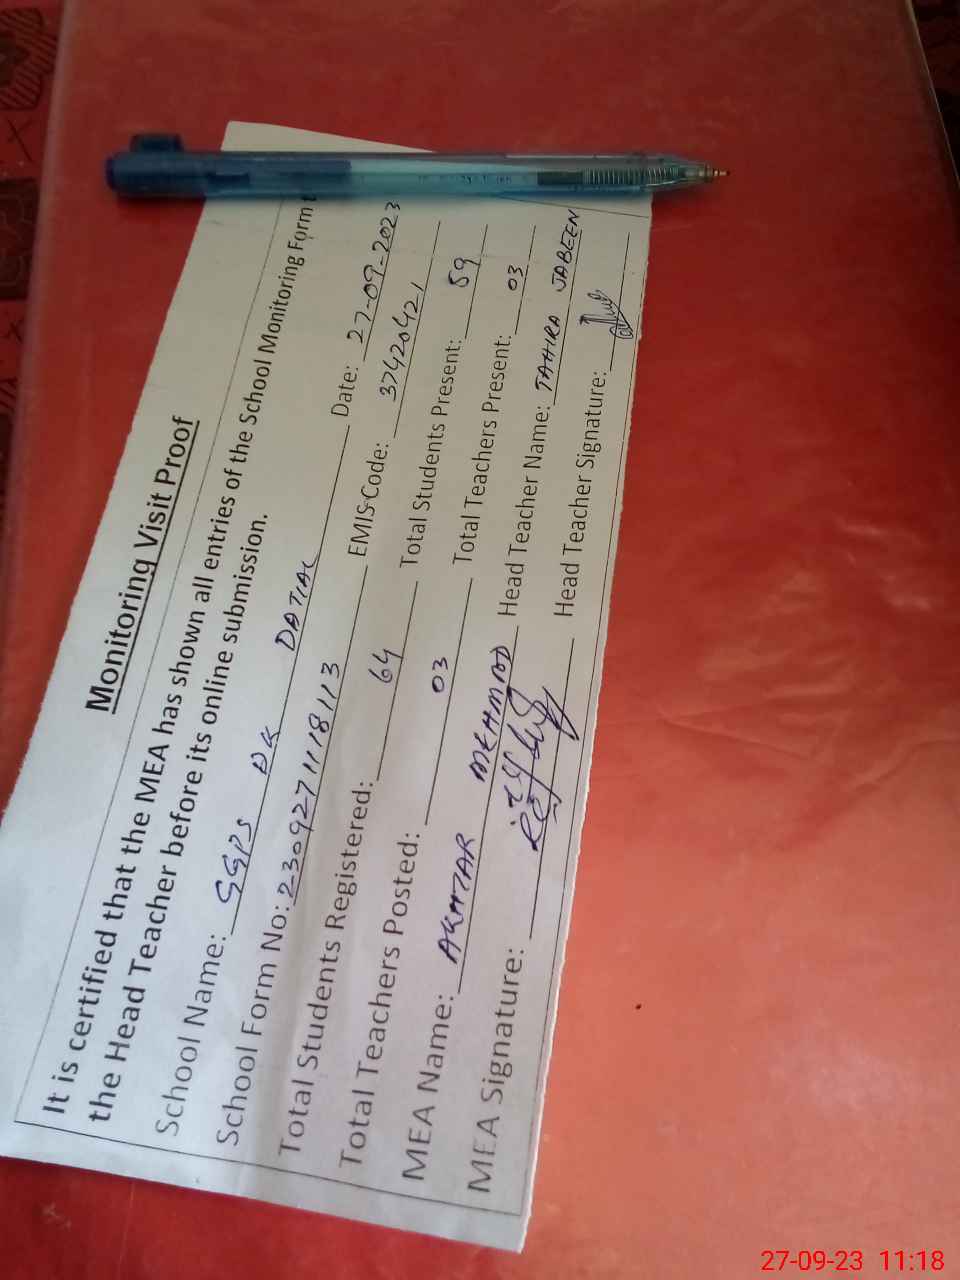 Monitoring Visit Proof
It is certified that the MEA has shown all entries of the School Monitoring Form t
the Head Teacher before its online submission.
School Name: GGPS DK DATIAL Date: 27-09-2023
School Form No: 2309271118113 EMIS Code: 37420421
Total Students Registered: 64 Total Students Present: 59
Total Teachers Posted: 03 Total Teachers Present: 03
MEA Name: AKHTAR MEHMOOD Head Teacher Name: TAHIRA JABEEN
MEA Signature: Head Teacher Signature:
27-09-23 11:18